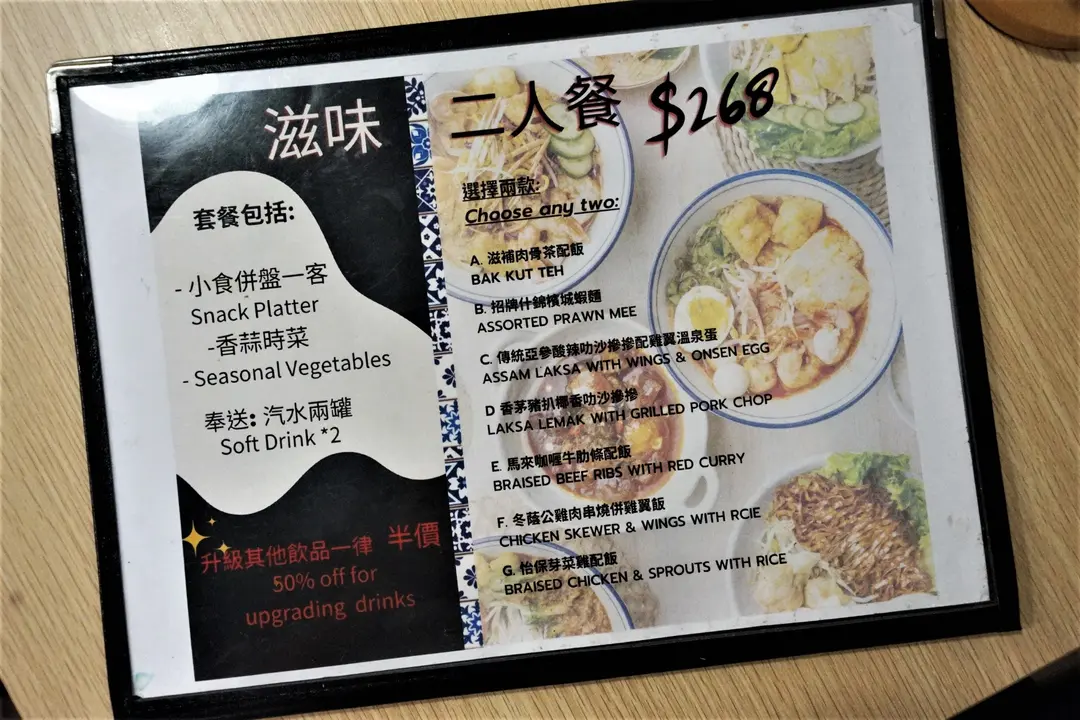 滋味
套餐包括:
- 小食併盤一客
Snack Platter
-香蒜時菜
- Seasonal Vegetables
奉送: 汽水兩罐
Soft Drink *2
升級其他飲品一律 半價
50% off for
upgrading drinks
二人餐 $268
選擇兩款:
Choose any two:
A. 滋補肉骨茶配飯
BAK KUT TEH
B. 招牌什錦檳城蝦麵
ASSORTED PRAWN MEE
C. 傳統亞參酸辣叻沙摻摻配雞翼溫泉蛋
ASSAM LAKSA WITH WINGS & ONSEN EGG
D 香茅豬扒椰香叻沙摻摻
LAKSA LEMAK WITH GRILLED PORK CHOP
E. 馬來咖喱牛肋條配飯
BRAISED BEEF RIBS WITH RED CURRY
F. 冬蔭公雞肉串燒併雞翼飯
CHICKEN SKEWER & WINGS WITH RCIE
G. 怡保芽菜雞配飯
BRAISED CHICKEN & SPROUTS WITH RICE